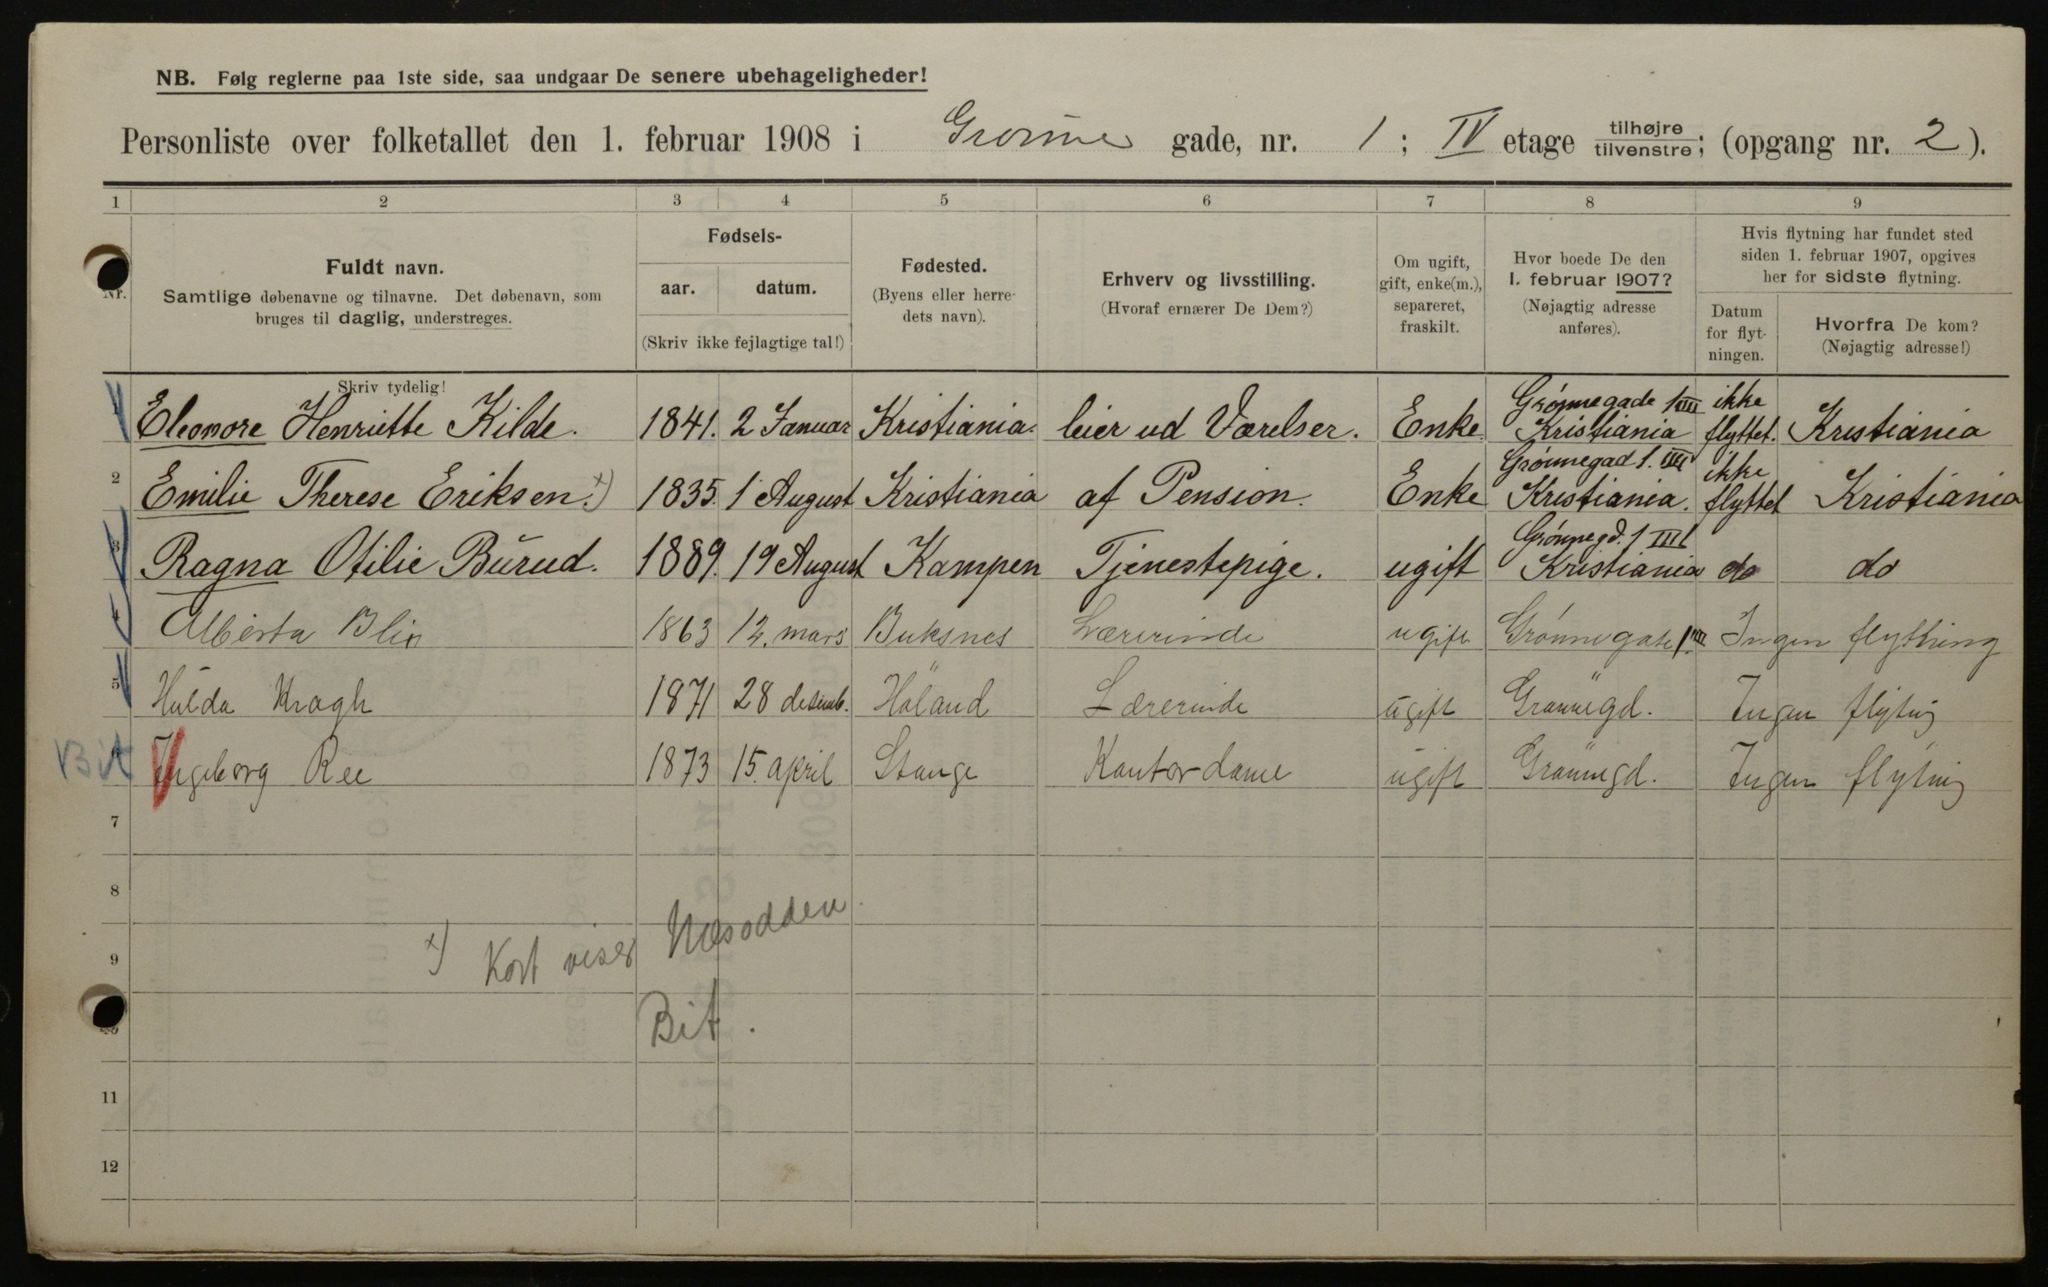 NB. Følg reglerne paa 1ste side, saa undgaar De senere ubehageligheder!
Personliste over folketallet den 1. februar 1908 i Grønne gade, nr. 1; IV etage tilhøjre tilvenstre; (opgang nr. 2).
1 2 3 4 5 6 7 8 9
Nr.
Fuldt navn.
Samtlige døbenavne og tilnavne. Det døbenavn, som
bruges til daglig, understreges.
Skriv tydelig!
Fødsels-
aar. datum.
(Skriv ikke fejlagtige tal!)
Fødested.
(Byens eller herre-
dets navn).
Erhverv og livsstilling.
(Hvoraf ernærer De Dem?)
Om ugift,
gift, enke(m.),
separeret,
fraskilt.
Hvor boede De den
1. februar 1907?
(Nøjagtig adresse
anføres).
Hvis flytning har fundet sted
siden 1. februar 1907, opgives
her for sidste flytning.
Datum
for flyt-
ningen.
Hvorfra De kom?
(Nøjagtig adresse!)
1 Eleonore Henriette Kilde. 1841. 2 Januar Kristiania. leier ud Værelser. Enke. Grønnegade 1 IIII Kristiania ikke flyttet. Kristiania
2 Emilie Therese Eriksen. x) 1835. 1 August Kristiania af Pension. Enke Grønnegad 1. IIII Kristiania. ikke flyttet Kristiania
3 Ragna Otilie Burud. 1889. 19 August Kampen Tjenestepige. ugift Grønnegd. 1 IIII Kristiania do do
4 Alberta Blix 1863 12. mars Buksnes Lærerinde ugift Grønnegate 1 IIII Ingen flytning
5 Hulda Kragh 1871 28 desemb. Høland Lærerinde ugift Grønnegd. Ingen flytnig
Bit Ingeborg Ree 1873 15. april Stange Kontordame ugift Grønnegd. Ingen flytnig
7
8
9
x) Kort viser Næsodden.
10
Bit.
11
12